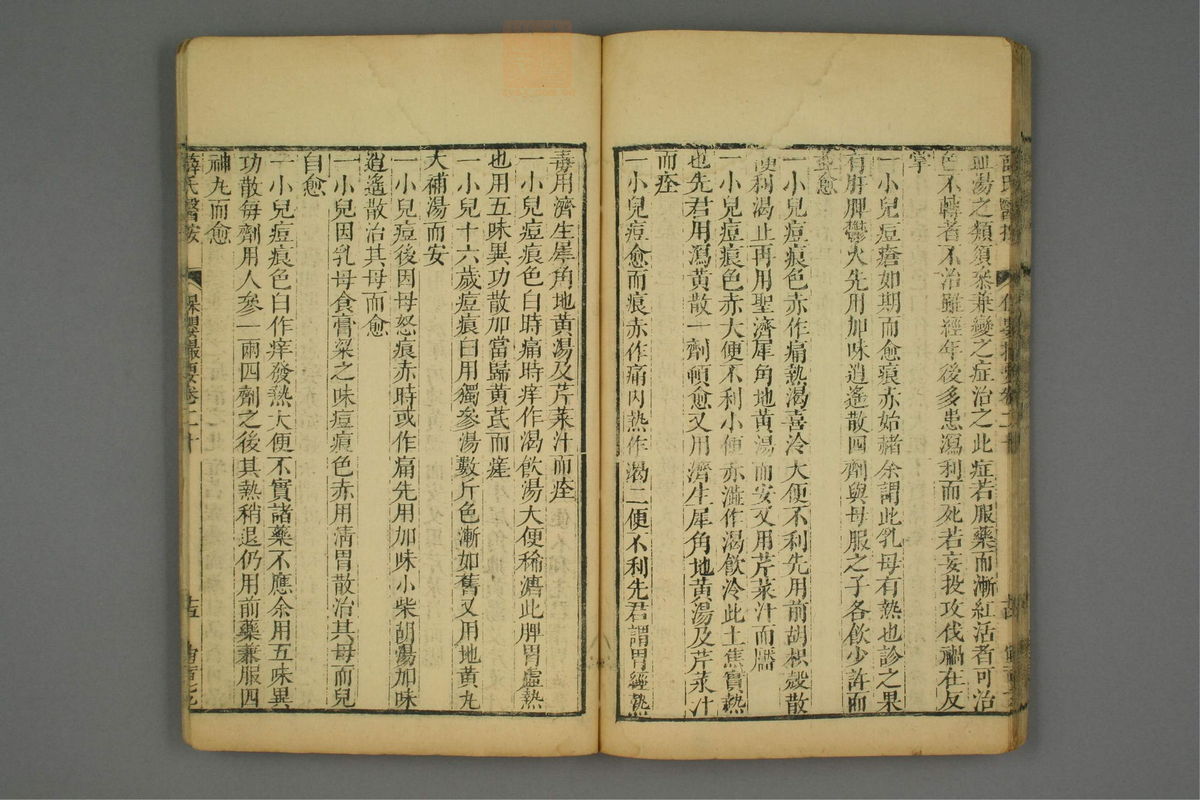 薛氏醫按
保嬰撮要卷二十
血湯之類須察兼變之症治之此症若服藥而漸紅活者可治
色不轉者不治雖經年後多患瀉利而死若妄投攻伐禍在反
掌
一小兒痘瘡如期而愈痕赤始赭余謂此乳母有熱也診之果
有肝脾鬱火先用加味逍遙散四劑與母服之子各飲少許而
並愈
一小兒痘痕色赤作痛熱渴喜冷大便不利先用前胡枳殼散
便利渴止再用聖濟犀角地黃湯而安又用芹菜汁而靨
一小兒痘痕色赤大便不利小便赤澁作渴飲冷此土焦實熱
也先君用瀉黃散一劑頓愈又用濟生犀角地黃湯及芹菜汁
而痊
一小兒痘愈而痕赤作痛內熱作渴二便不利先君謂胃經熱
毒用濟生犀角地黃湯及芹菜汁而痊
一小兒痘痕色白時痛時痒作渴飲湯大便稀溏此脾胃虛熱
也用五味異功散加當歸黃芪而痊
一小兒十六歲痘痕白用獨參湯數斤色漸如舊又用地黃丸
大補湯而安
一小兒痘後因母怒痕赤時或作痛先用加味小柴胡湯加味
逍遙散治其母而愈
一小兒因乳母食膏粱之味痘痕色赤用清胃散治其母而兒
自愈
一小兒痘痕色白作痒發熱大便不實諸藥不應余用五味異
功散每劑用人參一兩四劑之後其熱稍退仍用前藥兼服四
神丸而愈
薛氏醫按
保嬰撮要卷二十
十五